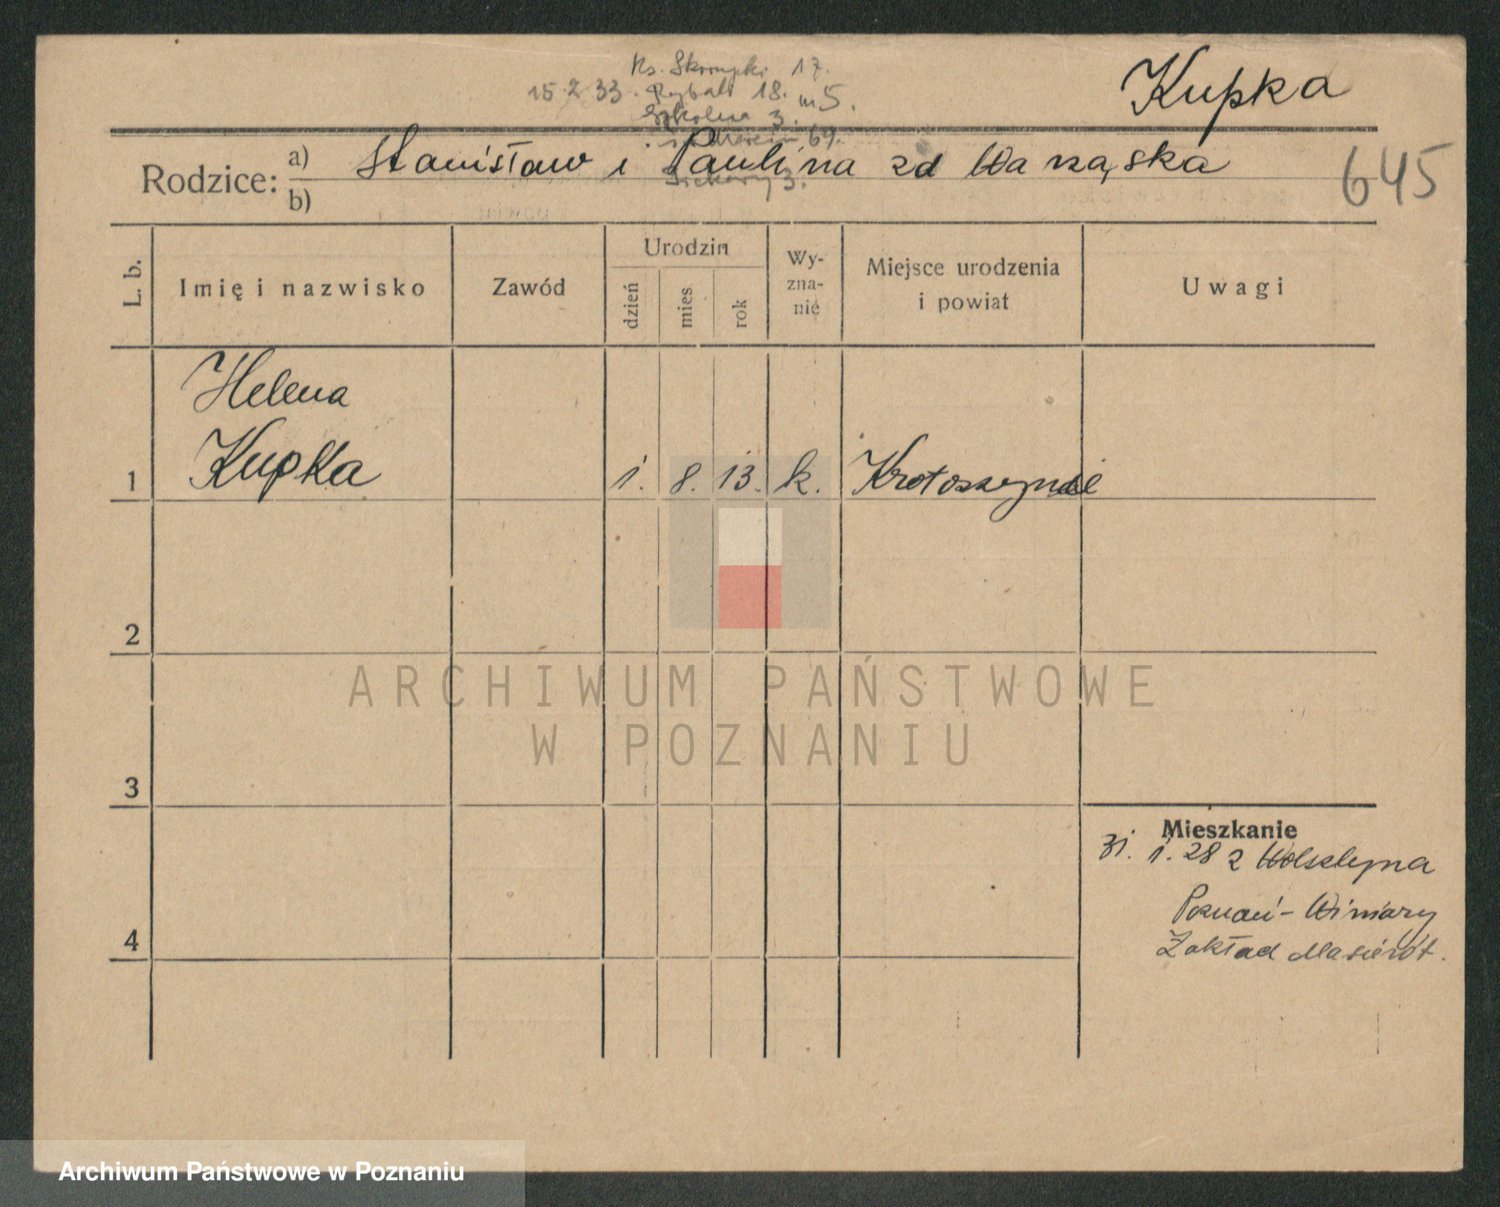 Kupka
Ks. Skorupki 17.
15.2.33. Rybaki 18. m 5.
Szkolna 3.
Marcin 69.
3.
Rodzice:
a) Stanisław i Paulina zd
b)
645
L. b.
Imię i nazwisko
Zawód
Urodzin
dzień
mies
rok
Wy-
zna-
nie
Miejsce urodzenia
i powiat
Uwagi
Helena
1 Kupka 1. 8. 13. k.
2
3
4
Mieszkanie
31. 1. 28 z Wolsztyna
Poznań - Winiary
Zakład
ARCHIWUM PAŃSTWOWE
W POZNANIU
Archiwum Państwowe w Poznaniu